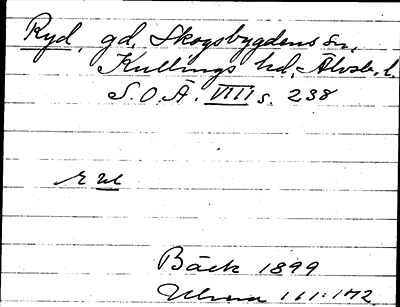 Ryd, gd, Skogsbygdens sn,
Kullings hd, Älvsb. l.
S.O.Ä. VIII s. 238
Bäck 1899
111:172